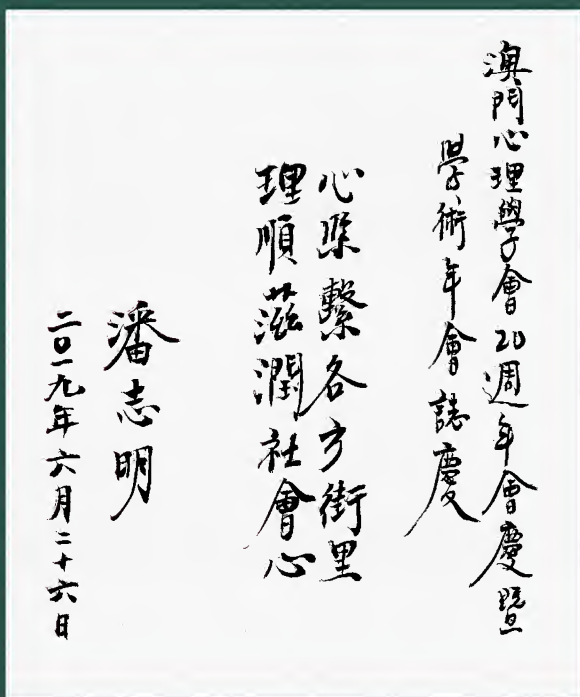 澳門心理學會20週年會慶暨
學術年會誌慶
心係繫各方街里
理順滋潤社會心
潘志明
二〇一九年六月二十六日